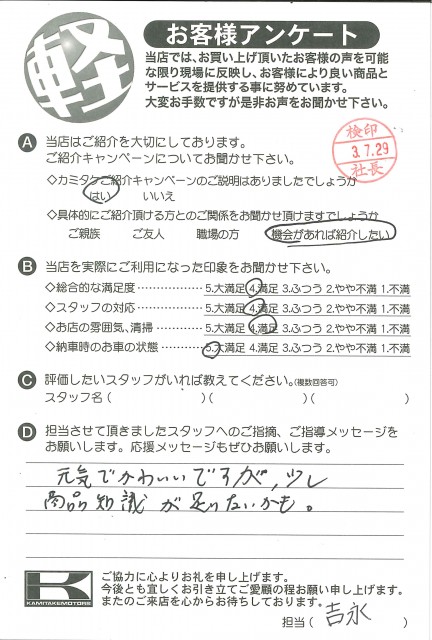 軽
お客様アンケート
当店では、お買い上げ頂いたお客様の声を可能
な限り現場に反映し、お客様により良い商品と
サービスを提供する事に努めています。
大変お手数ですが是非お声をお聞かせ下さい。
A 当店はご紹介を大切にしております。
ご紹介キャンペーンについてお聞かせ下さい。
検印
3.7.29
社長
◇カミタケご紹介キャンペーンのご説明はありましたでしょうか
はい いいえ
◇具体的にご紹介頂ける方とのご関係をお聞かせ頂けますでしょうか
ご親族 ご友人 職場の方 機会があれば紹介したい
B 当店を実際にご利用になった印象をお聞かせ下さい。
◇総合的な満足度 5.大満足 4.満足 3.ふつう 2.やや不満 1.不満
◇スタッフの対応 5.大満足 4.満足 3.ふつう 2.やや不満 1.不満
◇お店の雰囲気、清掃 5.大満足 4.満足 3.ふつう 2.やや不満 1.不満
◇納車時のお車の状態 5.大満足 4.満足 3.ふつう 2.やや不満 1.不満
C 評価したいスタッフがいれば教えてください。(複数回答可)
スタッフ名( )( )( )
D 担当させて頂きましたスタッフへのご指摘、ご指導メッセージを
お願いします。応援メッセージもぜひお願いします。
元気でかわいいですが、少し
商品知識が足りないかも。
K
KAMITAKEMOTORS
ご協力に心よりお礼を申し上げます。
今後とも宜しくお引き立てご愛顧の程お願い申し上げます。
またのご来店を心からお待ちしております。
担当(吉永)